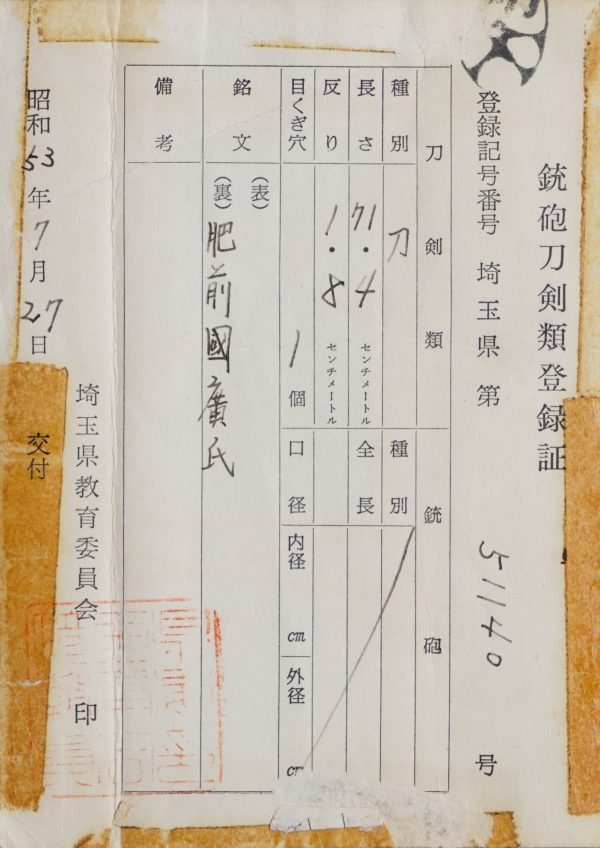 銃砲刀剣類登録証
登録記号番号 埼玉県 第 51140 号
刀剣類
種別 刀
長さ 71.4 センチメートル
反り 1.8 センチメートル
目くぎ穴 1 個
銘文
(表)
(裏) 肥前國廣氏
備考
銃砲
種別
全長
口径
内径 cm
外径 cm
埼玉県教育委員会 印
昭和 53 年 7 月 27 日 交付